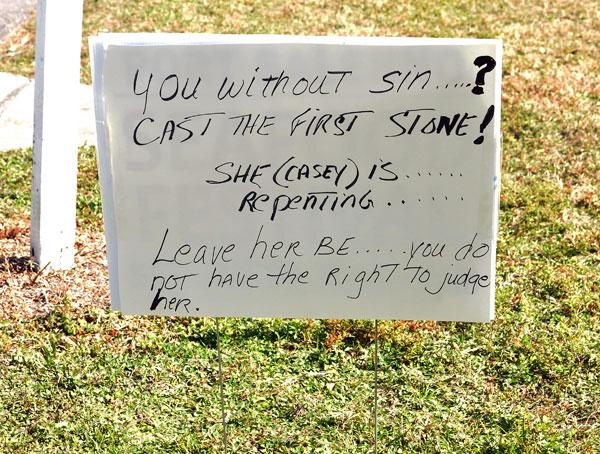 YOU WITHOUT SIN.....?
CAST THE FIRST STONE!
SHE (CASEY) IS......
REPENTING.......
Leave her BE.....you do
NOT HAVE the RIGHT TO judge
her.